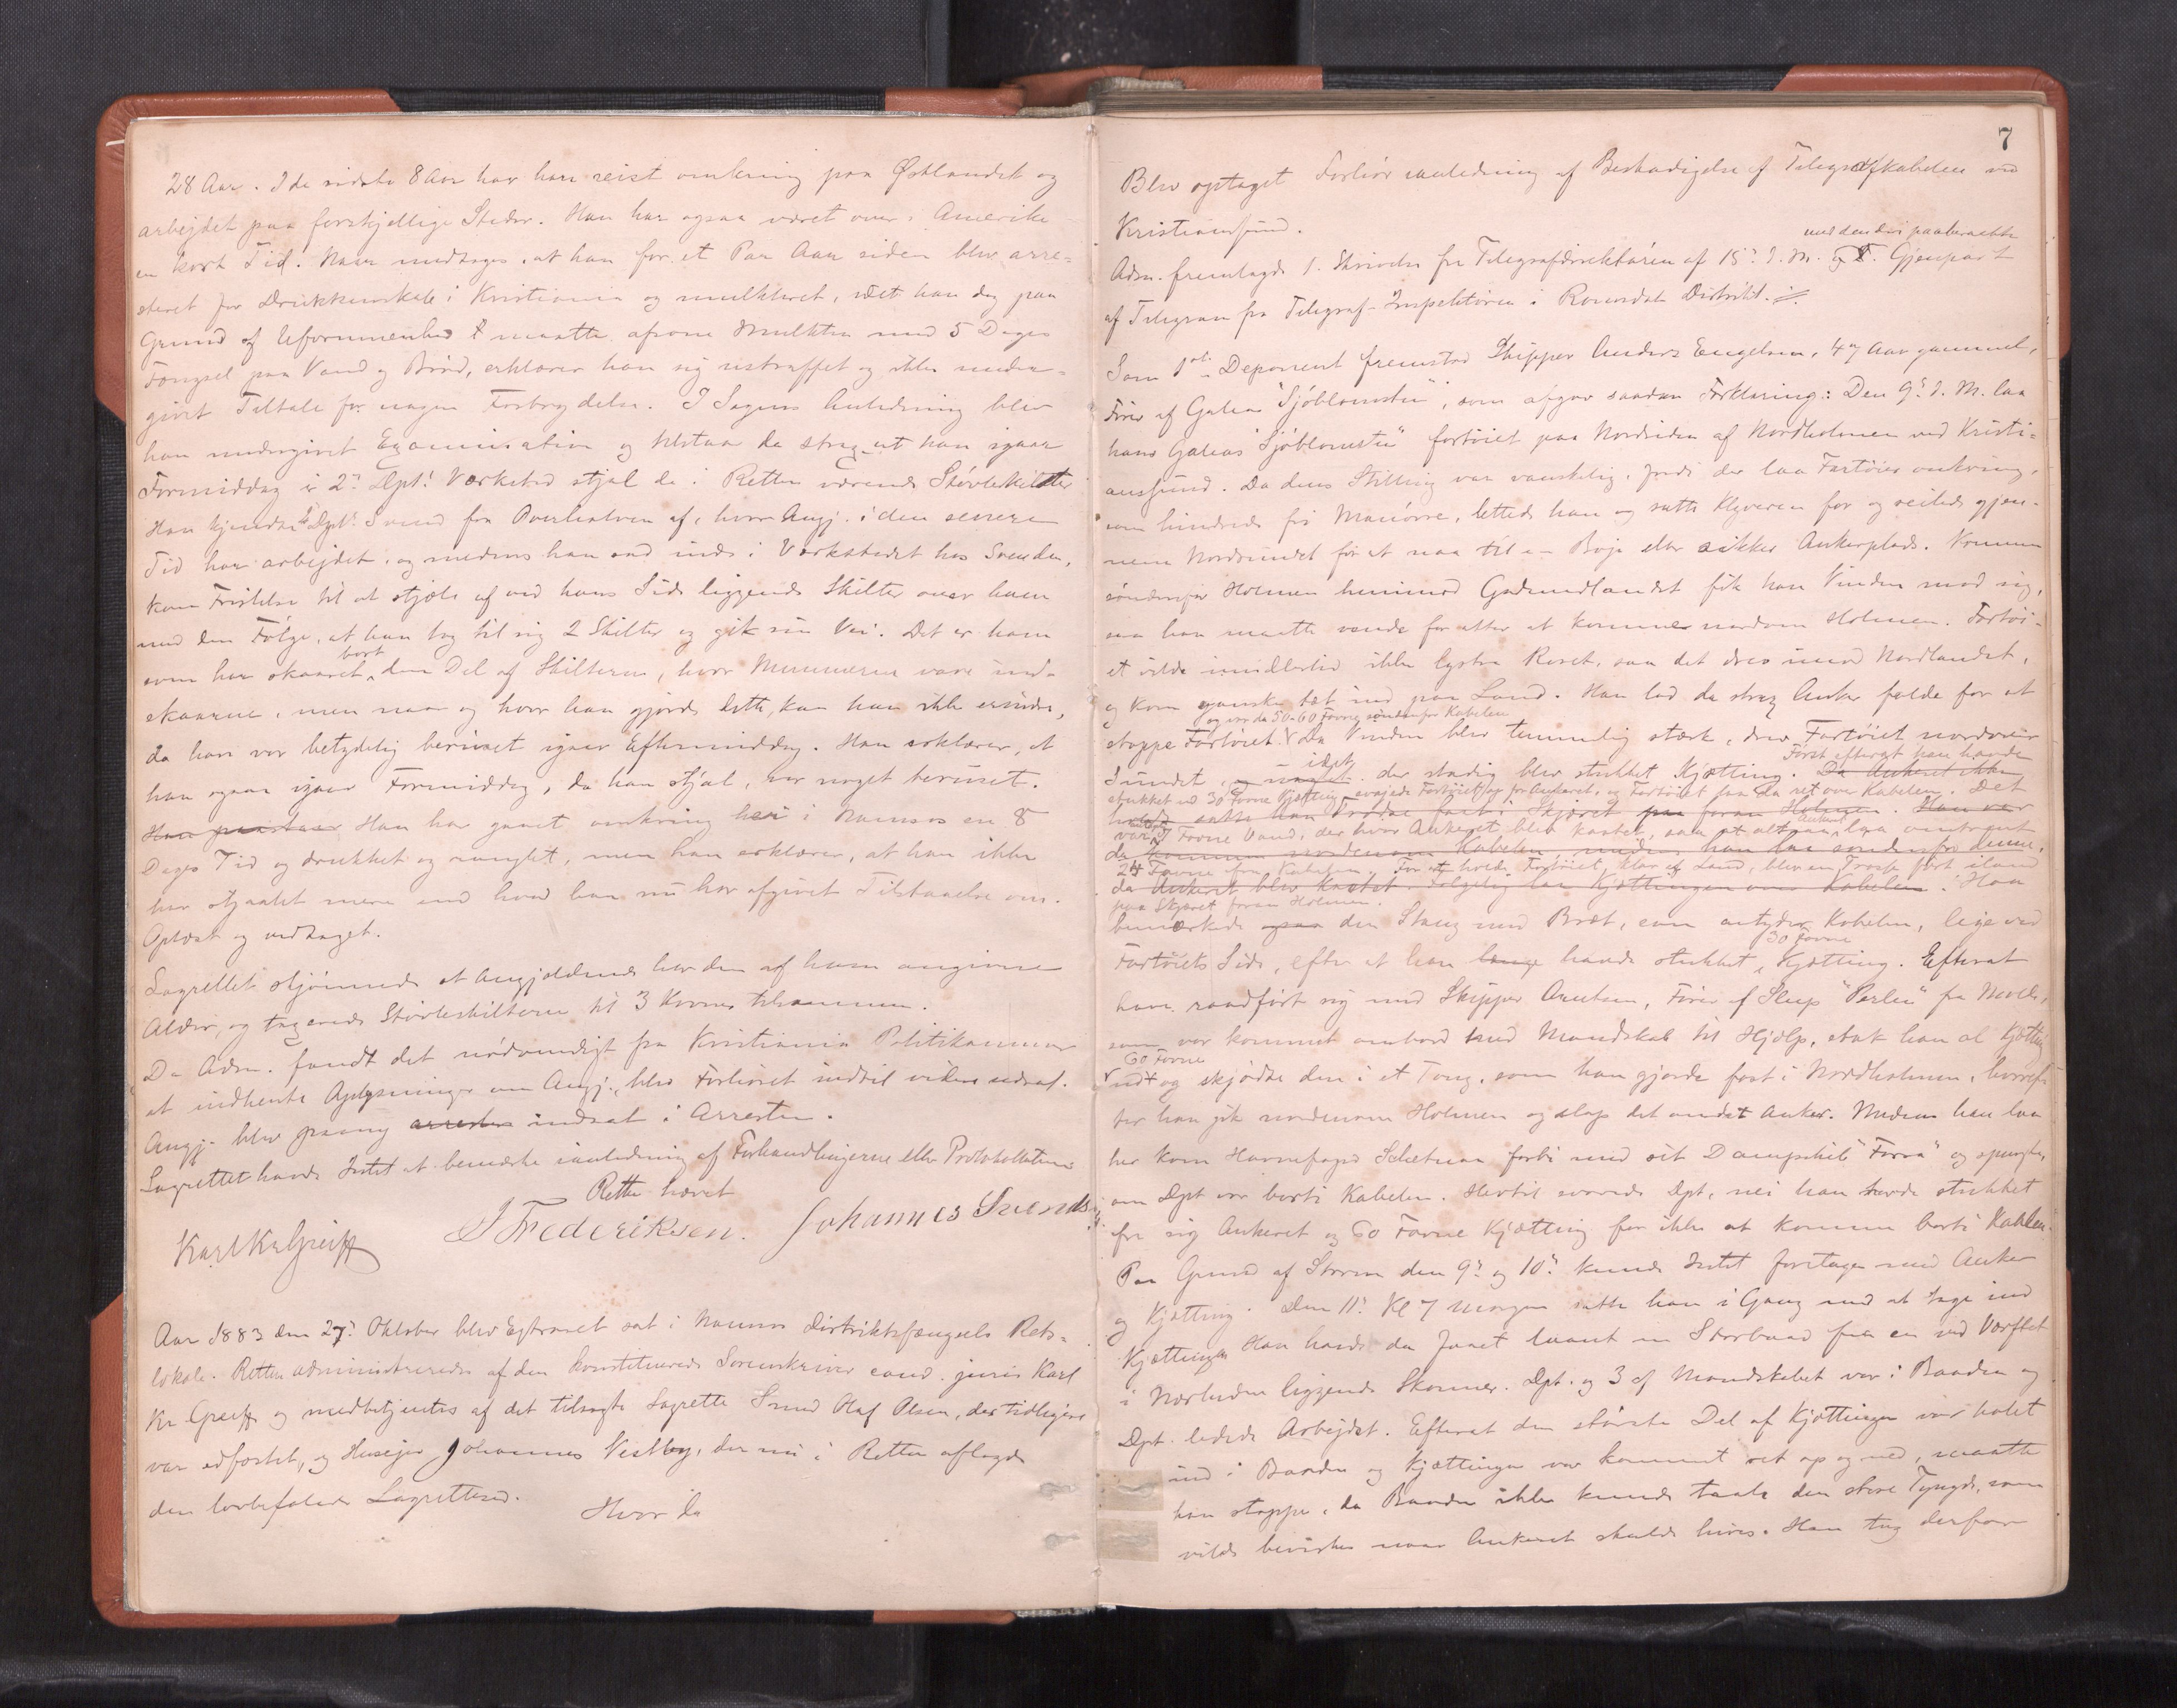 28 Aar. I de sidste 8 Aar har han reist omkring paa Østlandet og
arbejdet paa forskjellige Steder. Han har ogsaa været over i Amerika
en kort Tid. Naar undtages, at han for et Par Aar siden blev arre-
steret for Drukkenskab i Kristiania og mulkteret, idet han dog paa
Grund af Uformuenhed maatte afsone Mulkten med 5 Dages
Fængsel paa Vand og Brød, erklærer han sig ustraffet og ikke under-
givet Tiltale for nogen Forbrydelse. I Sagens Anledning blev
han undergivet Examination og tilstaar da strax at han igaar
Formiddag i 2den Dpts Værksted stjal de i Retten værende Støvleskilter
Han kjender Dpts Svend fra Overhalven af, hvor Angj. i den senere
Tid har arbejdet, og medens han sad inde i Værkstedet hos Svenden,
kom Fristelse til at stjæle af ved hans Side liggende Skilter over ham
med den Følge, at han tog til sig 2 Skilter og gik sin Vei. Det er ham
bort
som har skaaret den Del af Skilterne, hvor Nummerne vare ind-
skaarne, men naar og hvor han gjorde dette, kan han ikke erindre,
da han var betydelig beruset igaar Eftermiddag. Han erklærer, at
han ogsaa igaar Formiddag, da han stjal, var noget beruset.
Han paastaar Han har gaaet omkring her i Namsos en 8
Dages Tid og drukket og ranglet, men han erklærer, at han ikke
har stjaalet mere end hvad han nu har afgivet Tilstaaelse om.
Oplæst og vedtaget.
Lagrettet skjønnede at Angjældende har den af ham angivne
Alder, og taxerede Støvleskilterne til 3 Kroner tilsammen.
Da Adm. fandt det nødvendigt fra Kristiania Politikammer
at indhente Oplysninger om Angj., blev Forhøret indtil videre udsat.
Angj. blev paany arresten indsat i Arresten.
Lagrettet havde Intet at bemærke i anledning af Forhandlingerne eller Protokollationen
Retten hævet
Karl Kr Greiff J Frederiksen. Johannes Svends
Aar 1883 den 27de Oktober blev Extraret sat i Namsos Distriktsfængsels Rets-
lokale. Retten administreredes af den konstituerede Sorenskriver cand. juris Karl
Kr. Greiff og medbetjentes af det tilsagte Lagrette Smed Olaf Olsen, der tidligere
var edfæstet, og Husejer Johannes Vestby, der nu i Retten aflagde
den lovbefalede Lagretteed.
Hvor da
7
Blev optaget Forhør i anledning af Beskadigelse af Telegrafkabelen ved
Kristiansund.
med den deri paaberaabte
Adm. fremlagde 1. Skrivelse fra Telegrafdirektøren af 15de d. M. Gjenpart
af Telegram fra Telegraf-Inspektøren i Romsdals Distrikt.
Som 1ste Deponent fremstod Skipper Anders Engelsen, 47 Aar gammel,
Fører af Galeas "Sjøblomsten", som afgav saadan Forklaring: Den 9de d. M. laa
hans Galeas "Sjøblomsten" fortøiet paa Nordsiden af Nordholmen ved Kristi-
ansund. Da dens Stilling var vanskelig, fordi der laa Fartøier omkring,
som hindrede fri Manøvre, lettede han og satte Klyveren for og seilede gjen-
nem Nordsundet for at naa til en Bøje eller sikker Ankerplads. Kommen
søndenfor Holmen henimod Gudmundlandet fik han Vinden mod sig,
saa han maatte vende for atter at komme nordom Holmen. Fartøi-
et vilde imidlertid ikke lystre Roret, saa det drev imod Nordlandet,
og kom ganske tæt ind paa Land. Han lod da strax Anker falde for at
og var da 50-60 Favne søndenfor Kabelen
stoppe Fartøiet. Da Vinden blev temmelig stærk, drev Fartøiet nordover
idet Først efterat han havde
Sundet, og der stadig blev stukket Kjætting. Da Ankeret ikke
stukket ud 30 Favne Kjætting svajede Fartøiet op for Ankeret, og Fartøiet laa da ret over Kabelen. Det
holdt satte han Trosse fast i Skjæret foran Holmen. Han var
var Favne Vand, der hvor Ankeret blev kastet, saa at altsaa Ankeret laa omtrent
da kommen nordenom Kabelen, medens han laa søndenfor denne,
24 Favne fra Kabelen. For at holde Fartøiet klar af Land, blev en Trosse ført iland
da Ankeret blev kastet. Følgelig laa Kjættingen over Kabelen. Han
paa Skjæret foran Holmen.
bemærkede den Stang med Bræt, som antyder Kabelen, lige ved
30 Favne
Fartøiets Side, efter at han længe havde stukket Kjætting. Efterat
have raadført sig med Skipper Arntsen, Fører af Slup "Perlen" fra Molde,
som var kommet ombord med Mandskab til Hjælp, stak han al Kjætting
60 Favne
ud og skjødte den i et Toug, som han gjorde fast i Nordholmen, hvoref-
ter han gik nordenom Holmen og slap det andet Anker. Medens han laa
her kom Havnefoged forbi med sit Dampskib "Forra" og spurgte,
om Dpt var borti Kabelen. Hertil svarede Dpt, nei han havde stukket
fra sig Ankeret og 60 Favne Kjætting for ikke at komme borti Kabelen.
Paa Grund af Storm den 9de og 10de kunde Intet foretages med Anker
og Kjætting. Den 11te Kl 7 Morgen satte han i Gang med at tage ind
Kjættingen Han havde da faaet laant en Storbaad fra en ved Værftet
i Nærheden liggende Skonner. Dpt. og 3 af Mandskabet var i Baaden og
Dpt. ledede Arbejdet. Efterat den største Del af Kjættingen var halet
ind i Baaden og Kjættingen var kommet ret op og ned, maatte
han stoppe, da Baaden ikke kunde taale den store Tyngde, som
vilde bevirkes naar Ankeret skulde hives. Han tog derfor